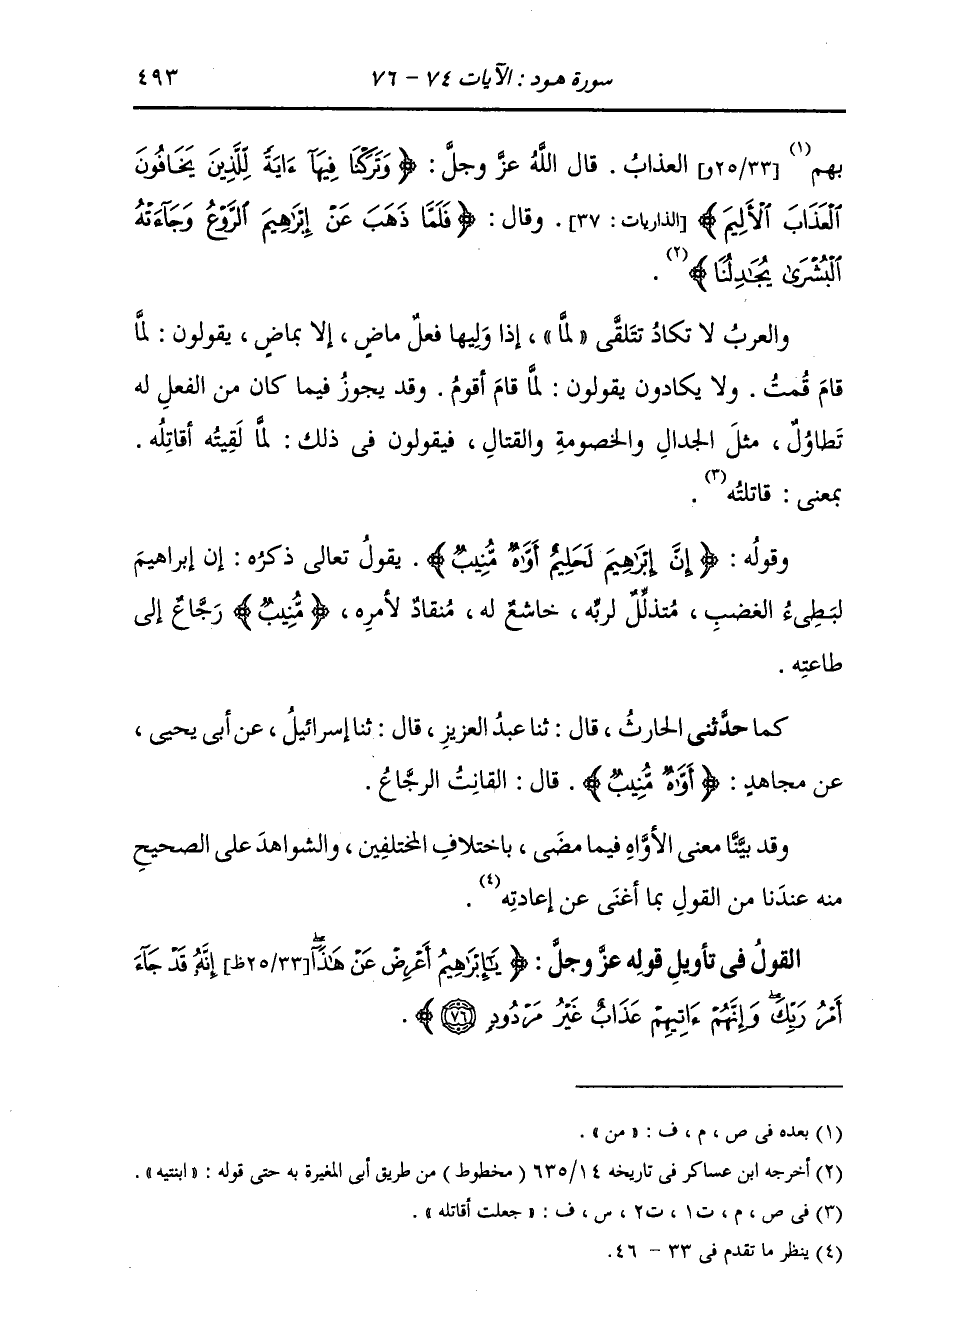 سورة هود : الآيات ٧٤ - ٧٦
٤٩٣
بهم(١) [٢٥/٣٣و] العذابُ . قال اللَّهُ عزَّ وجلَّ : ﴿ وَتَرَكْنَا فِيهَآ ءَايَةً لِّلَّذِينَ يَخَافُونَ
ٱلْعَذَابَ ٱلْأَلِيمَ ﴾ [الذاريات : ٣٧] . وقال : ﴿ فَلَمَّا ذَهَبَ عَنْ إِبْرَٰهِيمَ ٱلرَّوْعُ وَجَآءَتْهُ
ٱلْبُشْرَىٰ يُجَٰدِلُنَا ﴾(٢) .
والعربُ لا تكادُ تتَلقَّى « لمَّا » ، إذا وَلِيها فعلٌ ماضٍ ، إلا بماضٍ ، يقولون : لمَّا
قامَ قُمتُ . ولا يكادون يقولون : لمَّا قامَ أقومُ . وقد يجوزُ فيما كان من الفعلِ له
تَطاوُلٌ ، مثلَ الجدالِ والخصومةِ والقتالِ ، فيقولون فى ذلك : لمَّا لَقِيتُه أقاتِلُه .
بمعنى : قاتلتُه(٣) .
وقولُه : ﴿ إِنَّ إِبْرَٰهِيمَ لَحَلِيمٌ أَوَّٰهٌ مُّنِيبٌ ﴾ . يقولُ تعالى ذكرُه : إن إبراهيمَ
لبَطِىءُ الغضبِ ، مُتذلِّلٌ لربِّه ، خاشعٌ له ، مُنقادٌ لأمرِه ، ﴿ مُّنِيبٌ ﴾ رَجَّاعٌ إلى
طاعتِه .
كما حدَّثنى الحارثُ ، قال : ثنا عبدُ العزيزِ ، قال : ثنا إسرائيلُ ، عن أبى يحيى ،
عن مجاهدٍ : ﴿ أَوَّٰهٌ مُّنِيبٌ ﴾ . قال : القانِتُ الرجَّاعُ .
وقد بيَّنَّا معنى الأوَّاهِ فيما مضَى ، باختلافِ المختلفِين ، والشواهدَ على الصحيحِ
منه عندَنا من القولِ بما أغنَى عن إعادتِه(٤) .
القولُ فى تأويلِ قولِه عزَّ وجلَّ : ﴿ يَٰٓإِبْرَٰهِيمُ أَعْرِضْ عَنْ هَٰذَآۖ [٢٥/٣٣ظ] إِنَّهُۥ قَدْ جَآءَ
أَمْرُ رَبِّكَۖ وَإِنَّهُمْ ءَاتِيهِمْ عَذَابٌ غَيْرُ مَرْدُودٍ ٧٦ ﴾ .
(١) بعده فى ص ، م ، ف : « من » .
(٢) أخرجه ابن عساكر فى تاريخه ٦٣٥/١٤ ( مخطوط ) من طريق أبى المغيرة به حتى قوله : « ابنتيه » .
(٣) فى ص ، م ، ت١ ، ت٢ ، س ، ف : « جعلت أقاتله » .
(٤) ينظر ما تقدم فى ٣٣ - ٤٦ .